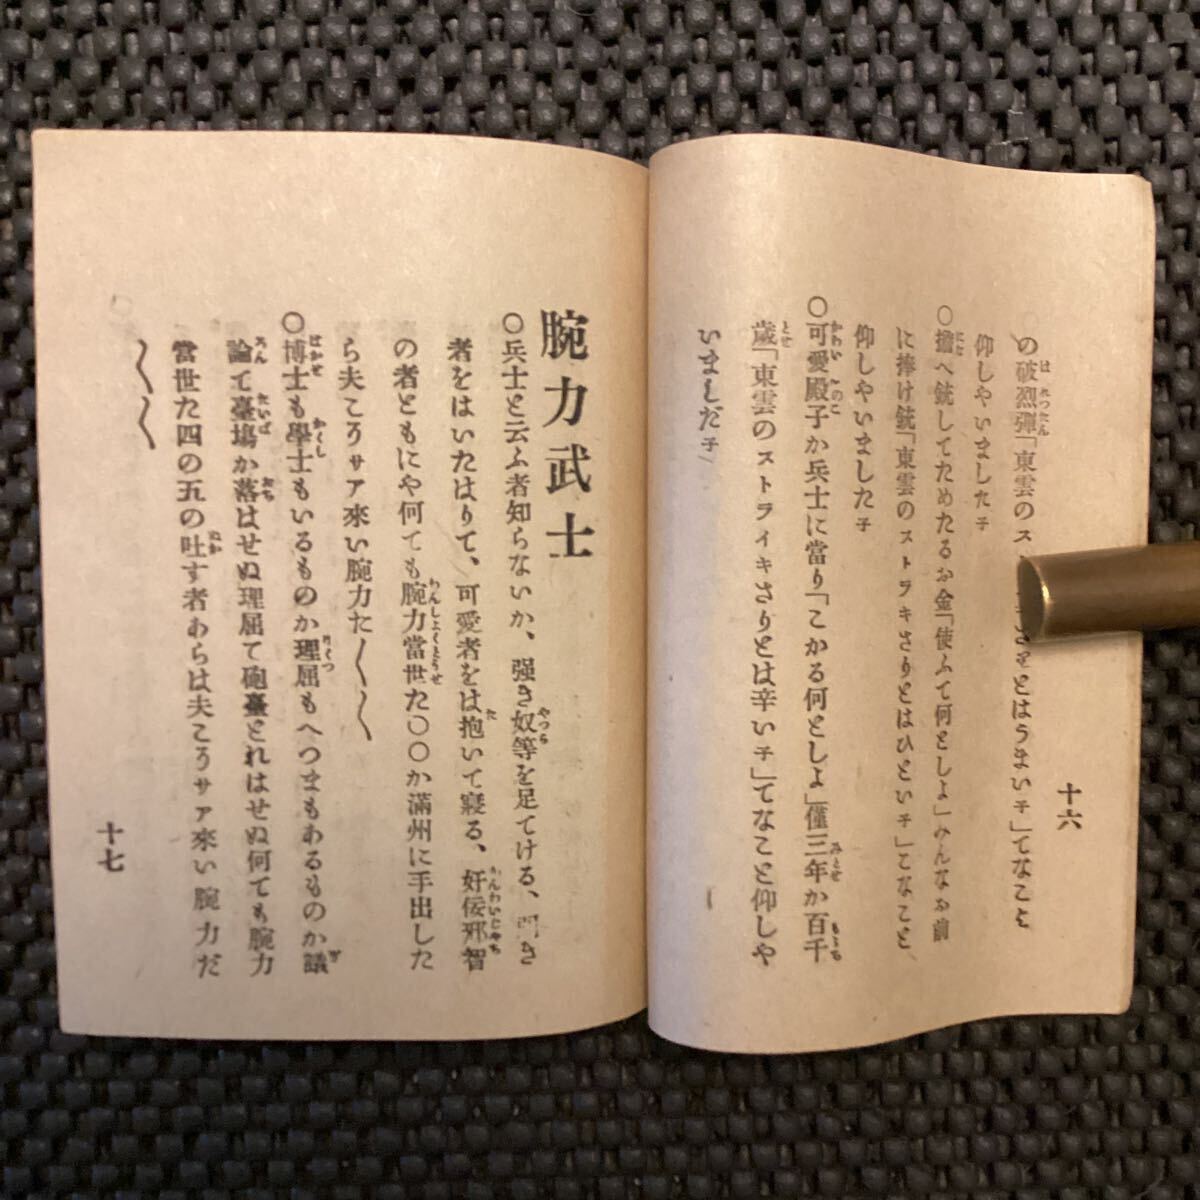 の破烈彈「東雲のスト さりとはうまい子」てなこと
仰しやいました子
〇擔へ銃してためたるお金「使ふて何としよ」みんなお前
に捧け銃「東雲のストラキさりとはひどい子」こなこと
仰しやいました子
〇可愛殿子か兵士に當り「こかる何としよ」僅三年か百千
歳「東雲のストライキさりとは辛い子」てなこと仰しや
いましだ子
十六
腕力武士
〇兵士と云ふ者知らないか、强き奴等を足てける、 き
者をはいたはりて、可愛者をは抱いて寢る、奸佞邪智
の者ともにや何ても腕力當世た〇〇か滿州に手出した
ら夫こうサア來い腕力た〱〱
〇博士も學士もいるものか理屈もへつまもあるものか議
論て臺塲か落はせぬ理屈て砲臺とれはせぬ何ても腕力
當世た四の五の吐す者あらは夫こうサア來い腕力だ
〱〱
十七